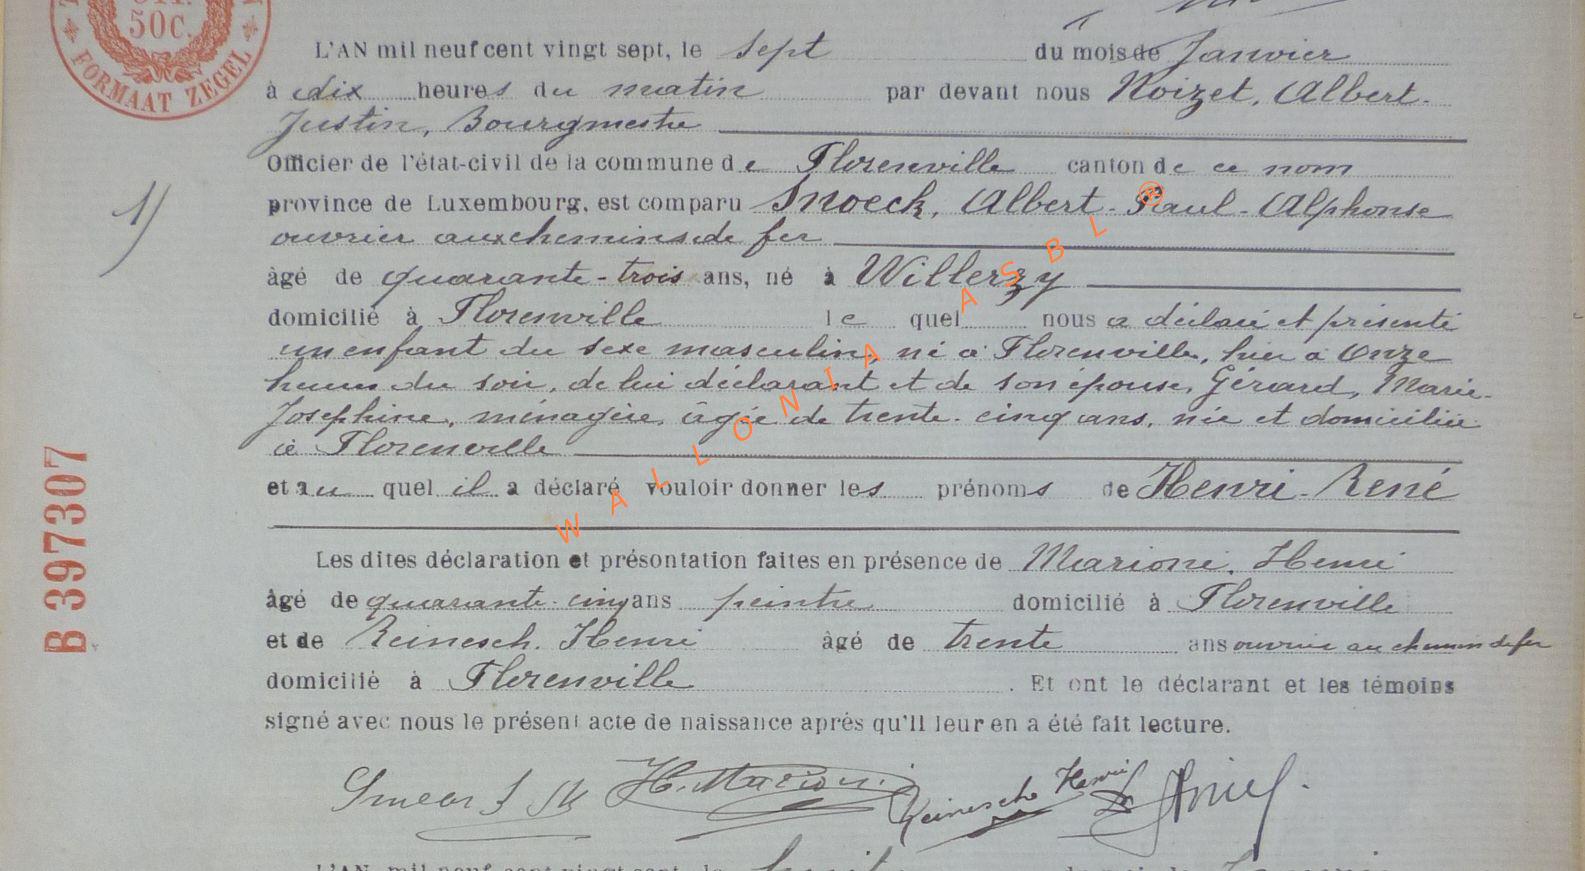 50C.
FORMAAT ZEGEL
L'AN mil neuf cent vingt sept, le sept du mois de Janvier
à dix heures du matin par devant nous Noizet, Albert-
Justin, Bourgmestre
Officier de l'état-civil de la commune de Florenville canton de ce nom
province de Luxembourg, est comparu Snoeck, Albert-Paul-Alphonse
ouvrier aux chemins de fer
âgé de quarante-trois ans, né à Willerzy
domicilié à Florenville le quel nous a déclaré et présenté
un enfant du sexe masculin, né à Florenville, hier à Onze
heures du soir, de lui déclarant et de son épouse, Gérard, Marie-
Joséphine, ménagère, âgée de trente-cinq ans, née et domiciliée
à Florenville
et au quel il a déclaré vouloir donner les prénoms de Henri-René
Les dites déclaration et présontation faites en présence de Marioni, Henri
âgé de quarante-cinq ans peintre domicilié à Florenville
et de Reinesch, Henri âgé de trente ans ouvrier au chemin de fer
domicilié à Florenville. Et ont le déclarant et les témoins
signé avec nous le présent acte de naissance après qu'il leur en a été fait lecture.
H. Marioni Reinesch Henri
L'AN mil neuf cent vingt sept, le huit du mois de Janvier
1)
B 397307
WALLONIA ASBL ®